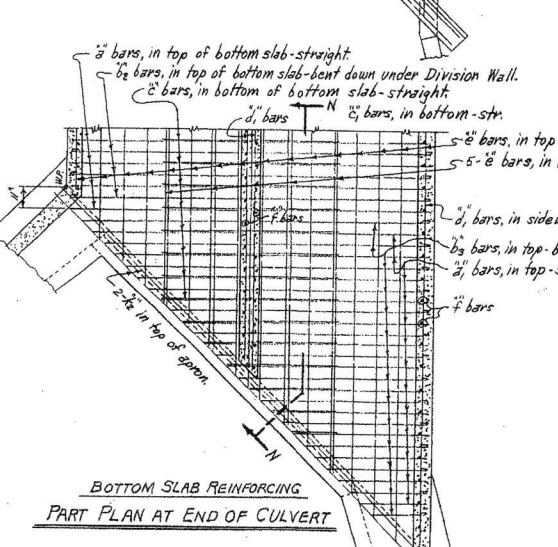 "a" bars, in top of bottom slab-straight.
"b2" bars, in top of bottom slab-bent down under Division Wall.
"c" bars, in bottom of bottom slab-straight.
N
"d1" bars
"c1" bars, in bottom-str.
"e" bars, in top
5-"e" bars, in
W.P.
"f" bars
"d1" bars, in
"b3" bars, in top-b
"a1" bars, in top-s
"f" bars
2-"k2" in top of apron.
N
BOTTOM SLAB REINFORCING
PART PLAN AT END OF CULVERT